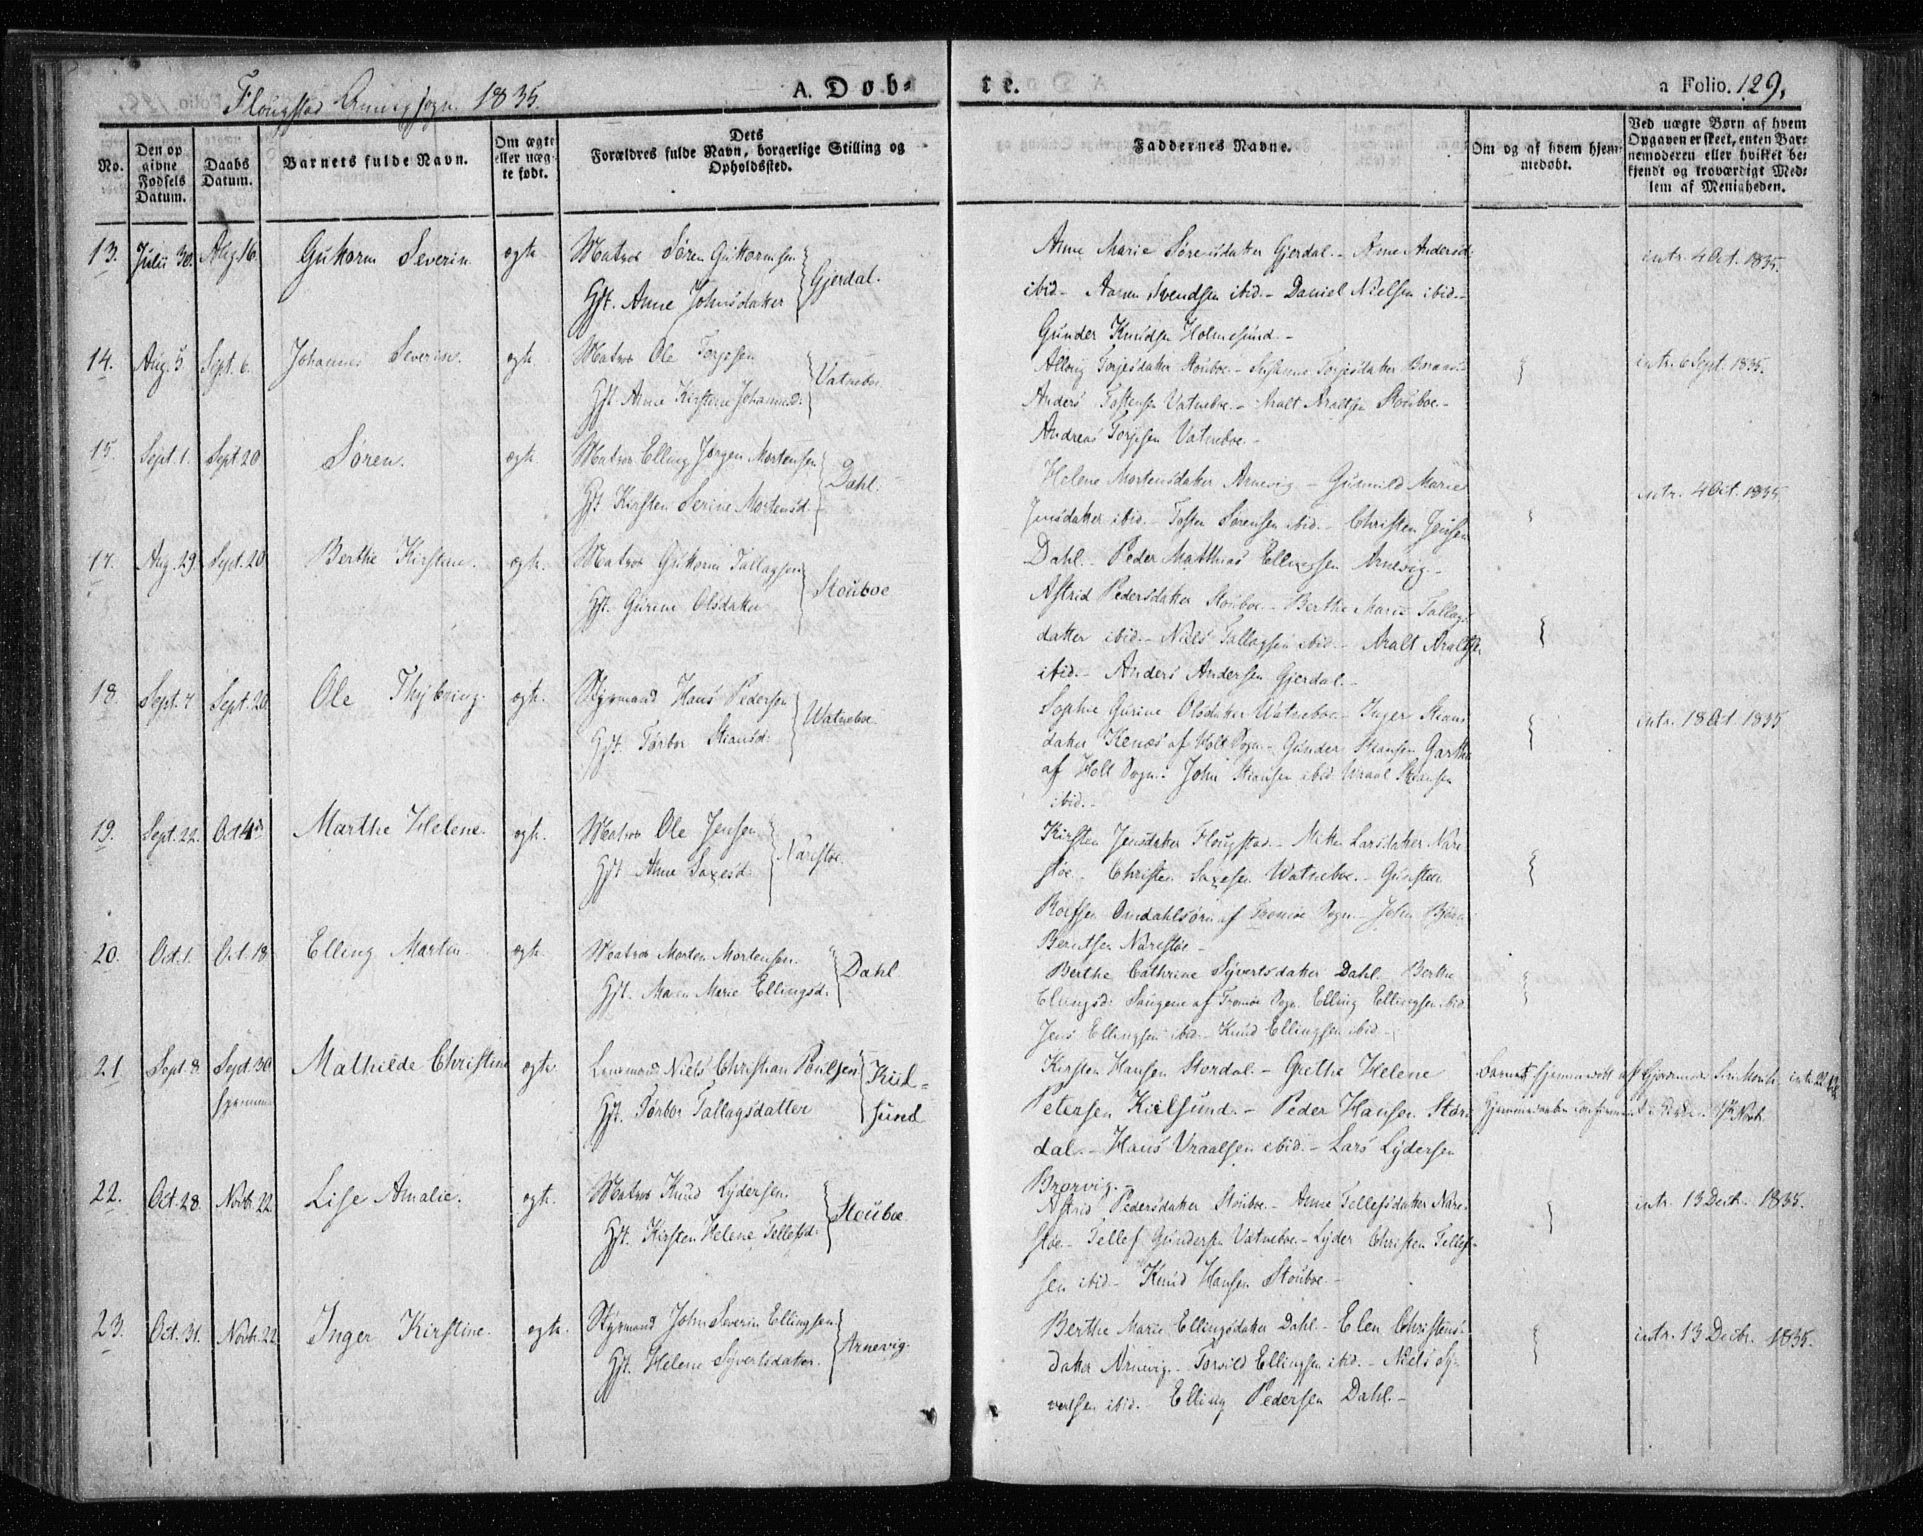 Flougstad Annexsogn. 1835.
A. Døb-
te.
a Folio. 129.
No.
Den op
givne
Fødsels
Datum.
Daabs
Datum.
Barnets fulde Navn.
Om ægte
eller uæg-
te født.
Dets
Forældres fulde Navn, borgerlige Stilling og
Opholdssted.
Faddernes Navne.
Om og af hvem hjem-
medøbt.
Ved uægte Børn af hvem
Opgaven er skeet, enten Bar-
nemoderen eller hvilket be-
kjendt og troværdigt Med-
lem af Menigheden.
13. Julii 30. Aug. 16. Guttorm Severin ægte. Matros Søren Guttormsen
Hst. Anne Johnsdatter Gjerdal.
Anne Marie Sørensdatter Gjerdal. - Anne Andersd:
ibid - Aanon Svendsen ibid. - Daniel Nielsen ibid. -
Gunder Knudsen Holmesund. -
intr. 4 Oct. 1835.
14. Aug. 5 Sept. 6. Johannes Severin. ægte. Matros Ole Torjesen
Hst. Anne Kirstine Johannesd: Vatneboe
Torjesdatter Stouboe. - Torjesdatter
Anders Tostensen Vatneboe. - Aralt Araltsen Stouboe. -
Andreas Torjesen Vatneboe. -
intr. 6 Sept. 1835.
15. Sept. 1. Sept 20 Søren. ægte. Matros Elling Jørgen Mortensen
Hst. Kirsten Serine Mortensd. Dahl.
Helene Mortensdatter Arnevig. - Gunnild Marie
Jensdatter ibid. - Tosten Sørensen ibid. - Christen Jensen
Dahl. - Peder Matthias Ellingsen Arnevig. -
intr. 4 Oct. 1835.
17. Aug. 29. Sept. 20 Berthe Kirstine. ægte. Matros Guttorm Tallagsen
Hst. Gurine Olsdatter Stouboe
Astrid Pedersdatter Stouboe. - Berthe Marie Tallags-
datter ibid. - Niels Tallagsen ibid. - Aralt Araltsen
ibid. - Anders Andersen Gjerdal. -
18. Sept. 7 Sept. 20. Ole Thybring. ægte. Styrmand Hans Pedersen
Hst. Torbor Steansd: Watneboe.
Sophie Gurine Olsdatter Watneboe - Inger Steans-
datter Kenæs af Holt Sogn - Gunder Steansen Garthe
af Holt Sogn. John Steansen ibid. Wraal Steansen
ibid. -
intr. 18 Oct. 1835
19. Sept. 22. Oct 4de Marthe Helene. ægte. Matros Ole Jensen
Hst. Anne Saxesd. Narestøe.
Kirsten Jensdatter Flougstad. - Larsdatter Nare-
støe - Christen Saxesen Watneboe. - Gunsten
Roefsen af Tromøe Sogn - John
Berntsen Narestøe -
20. Oct. 1. Oct. 18 Elling Martin ægte. Matros Morten Mortensen.
Hst. Maren Marie Ellingsd. Dahl
Berthe Cathrine Syvertsdatter Dahl. Berthe
Ellingsd: af Tromøe Sogn. Elling Ellingsen ibid.
Jens Ellingsen ibid. - Knud Ellingsen ibid. -
21. Sept. 8 Sept. 30
hjemme
Mathilde Christine ægte. Lensmand Niels Christian Poulsen
Hst. Torbor Tallagsdatter Kiil-
sund
Kirsten Hansen Stordal - Grethe Helene
Petersen Kiilsund. - Peder Hansen Stor-
dal. - Hans Vraalsen ibid. - Lars Lydersen
Brorvig. -
Barnet hjemmedøbt af
Hjemmedaaben
22. Oct. 28. Novb. 22. Lise Amalie. ægte. Matros Knud Lydersen.
Hst. Kirsten Helene Tellefsd. Stouboe.
Astrid Pedersdatter Stouboe. - Anne Tellefsdatter Nare-
støe - Tellef Gundersen Vatneboe. - Lyder Christen Tellef-
sen ibid - Knud Hansen Stouboe. -
intr. 13 Decbr. 1835.
23. Oct. 31. Novb. 22. Inger Kirstine. ægte. Styrmand John Severin Ellingsen
Hst. Helene Syvertsdatter. Arnevig.
Berthe Marie Ellingsdatter Dahl. - Elen Christens-
datter Arnevig. - Torvild Ellingsen ibid. - Niels Sy-
vertsen ibid. Elling Pedersen Dahl. -
intr. 13 Decbr. 1835.